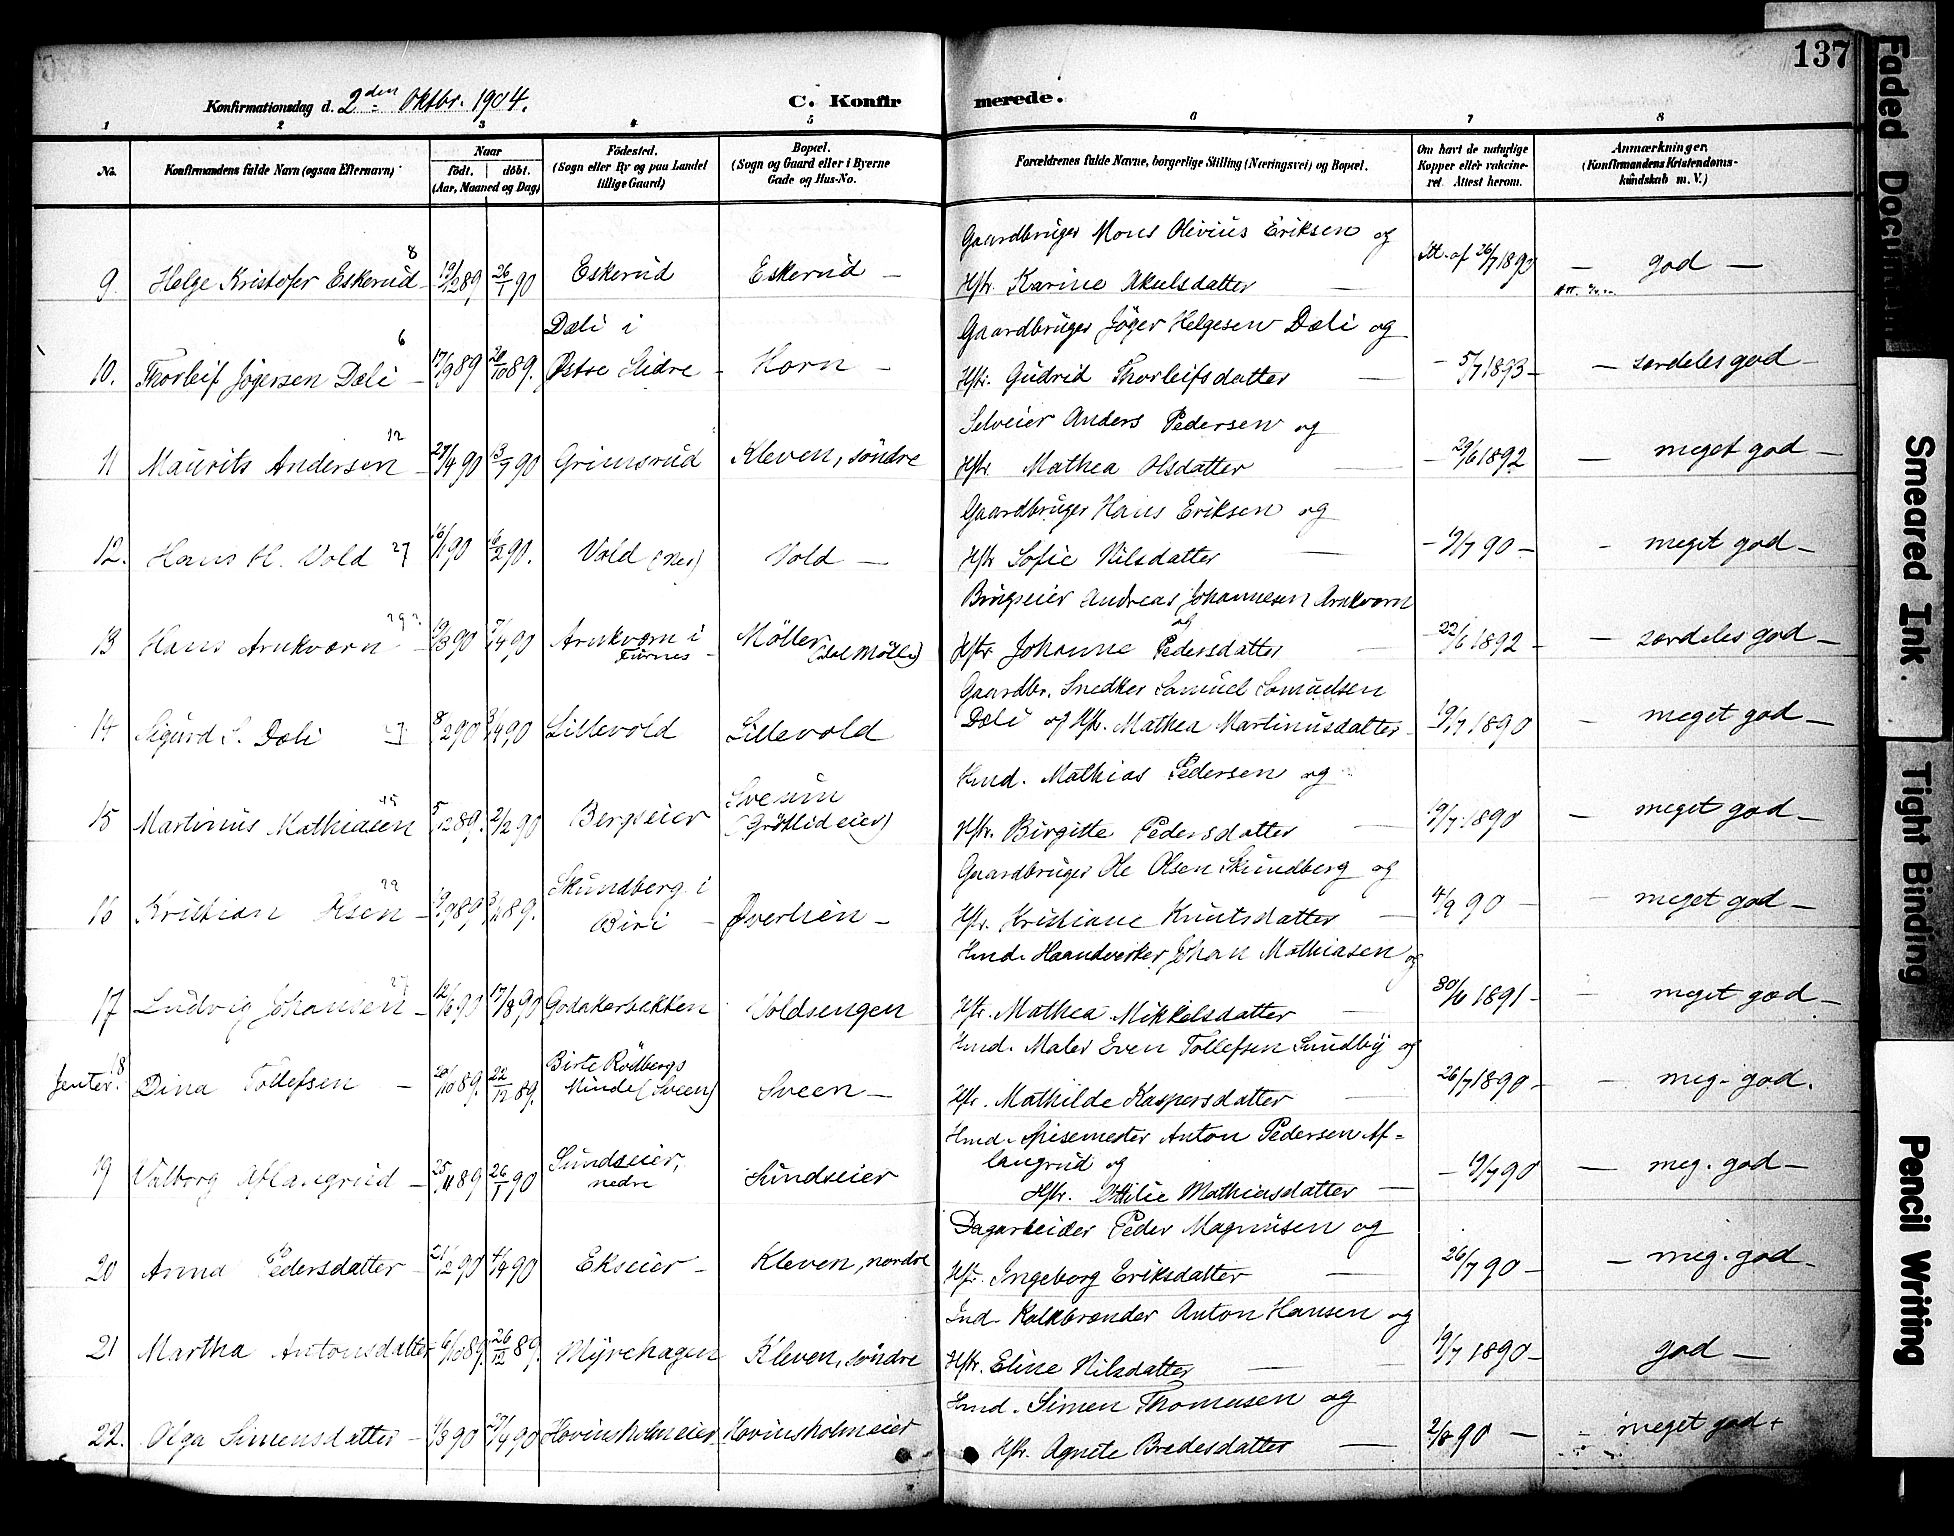 137
Konfirmationsdag d. 2den Oktbr. 1904.
C. Konfirmerede.
1 2 3 4 5 6 7 8
No.
Konfirmandens fulde Navn (ogsaa Efternavn)
Naar
født. døbt.
(Aar, Maaned og Dag)
Fødested.
(Sogn eller By og paa Landet
tillige Gaard)
Bopæl.
(Sogn og Gaard eller i Byerne
Gade og Hus-No.
Forældrenes fulde Navne, borgerlige Stilling (Næringsvei) og Bopæl.
Om havt de naturlige
Kopper eller vakcine-
ret. Attest herom.
Anmærkninger.
(Konfirmandens Kristendoms-
kundskab m. V.)
9. Helge Kristofer Eskerud 8 26/1 90 Eskerud Eskerud –
Gaardbruger Mons Olivius Eriksen og
Hstr. Karine Akselsdatter — god —
10. Thorleif Jøgersen Dæli 6 17/9 89 20/10 89. Dæli i
Østre Slidre – Korn –
Gaardbruger Jøger Helgesen Dæli og
Hstr. Gudrid Thorleifsdatter — – 5/7 1893 – – særdeles god –
11 Maurits Andersen 12 27/4 90 13/7 90 Grimsrud Kleven, søndre
Selveier Anders Pedersen og
Hstr Mathea Olsdatter — – 29/6 1892 – meget god –
12. Hans H. Vold 27 90 2 90. Vold (Nes) Vold –
Gaardbruger Hans Eriksen og
Hstr Sofie Nilsdatter — – 19/7 90 – – meget god –
13 Hans Arnkværn 3 90 4 90 Arnkværn i
Furnes – Møller
Brugseier Andreas Johannesen Arnkværn
og
Hstr Johanne Pedersdatter – 22/6 1892 – – særdeles god –
14 Sigurd S. Dæli 8/2 90 4 90 Lillevold Lillevold
Gaardbr. Snedker Samuel Samuelsen
Dæli og Hstr. Mathea Martinusdatter – 19/7 1890 – meget god –
15 Martinius Mathiasen 15 5/12 89. 2/2 90 Bergseier Sveum
(Grøtlideier)
Hmd. Mathias Pedersen og
Hstr. Birgitte Pedersdatter — 19/7 1890 – meget god –
16 Kristian Olsen 22 – 9 89 89. Skundberg i
Biri – Øverlien –
Gaardbruger Ole Olsen Skundberg og
Hstr. Kristiane Knutsdatter — 4/9 90 – – meget god –
17 Ludvig Johansen – 12/6 90 17/8 90 Godakerbakken Voldsengen
Hmd. Haandverker Johan Mathiasen og
Hstr. Mathea Mikkelsdatter — 30/6 1891 – – meget god –
Jenter. 18 Dina Tollefsen – 20/10 89. 22/12 89. Birte Rødbergs
Minde (Sveen) Sveen –
Hmd. Maler Even Tollefsen Sundby og
Hstr. Mathilde Kaspersdatter — 26/7 1890 – – meg. god.
19 Valborg Aflangrud – 25/11 89 26/1 90 Sundseier,
nedre Sundseier
Hmd. Spisemester Anton Pedersen Af-
langrud og
Hstr. Ottilie Mathiasdatter — – 19/7 90 – meg. god –
20 Anna Pedersdatter – 21/2 90 4/4 90 Ekseier – Kleven, nordre
Dagarbeider Peder Magnusen og
Hstr. Ingeborg Eriksdatter — 26/7 90 – – meg. god –
21 Martha Antonsdatter 6/10 89. 26/12 89. Myrehagen Kleven, søndre
Ind. Kalkbrænder Anton Hansen og
Hstr. Eline Nilsdatter — 19/7 1890 – god –
22. Olga Simensdatter – 3 90 27/4 90 Hovinsholmeier Hovinsholmeier
Hmd. Simen Thomasen og
Hstr. Agnete Bredesdatter — 2/8 90 – – meget god +
Faded Document
Smeared Ink.
Tight Binding
Pencil Writing